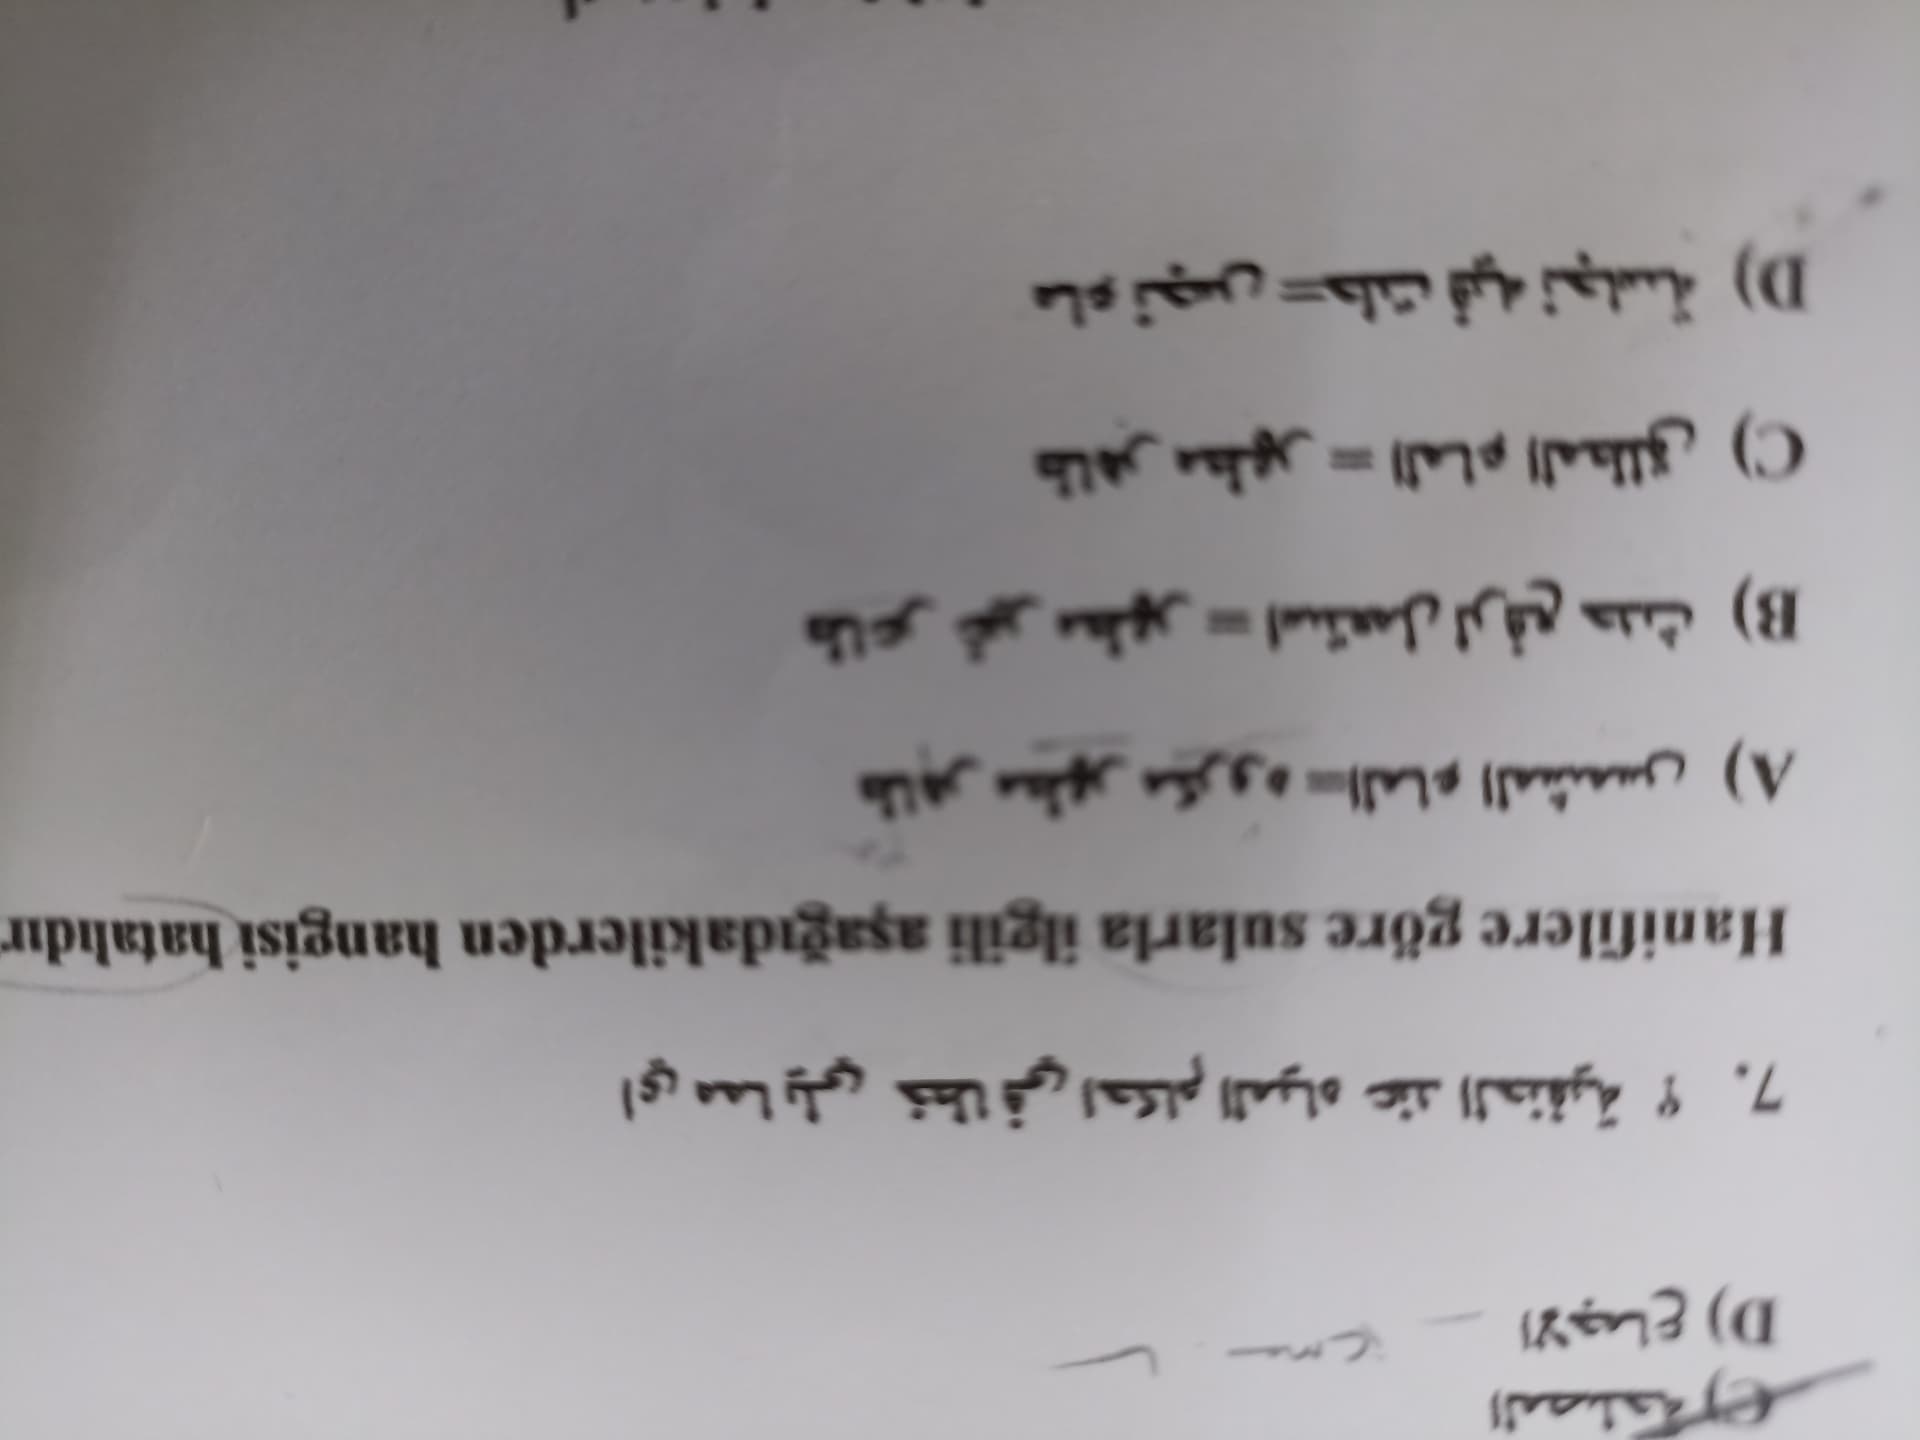 C) المصلحة
D) الاجماع
7. اي مما يلي خطا في احكام المياه عند الحنفية ؟
Hanifilere göre sularla ilgili aşağıdakilerden hangisi hatalıdır
A) طاهر مطهر مكروه =الماء المشمس
B) طاهر غير مطهر = استعمل لرفع حدث
C) طاهر مطهر = الماء المطلق
D) ماء نجس =حلت فيه نجاسة